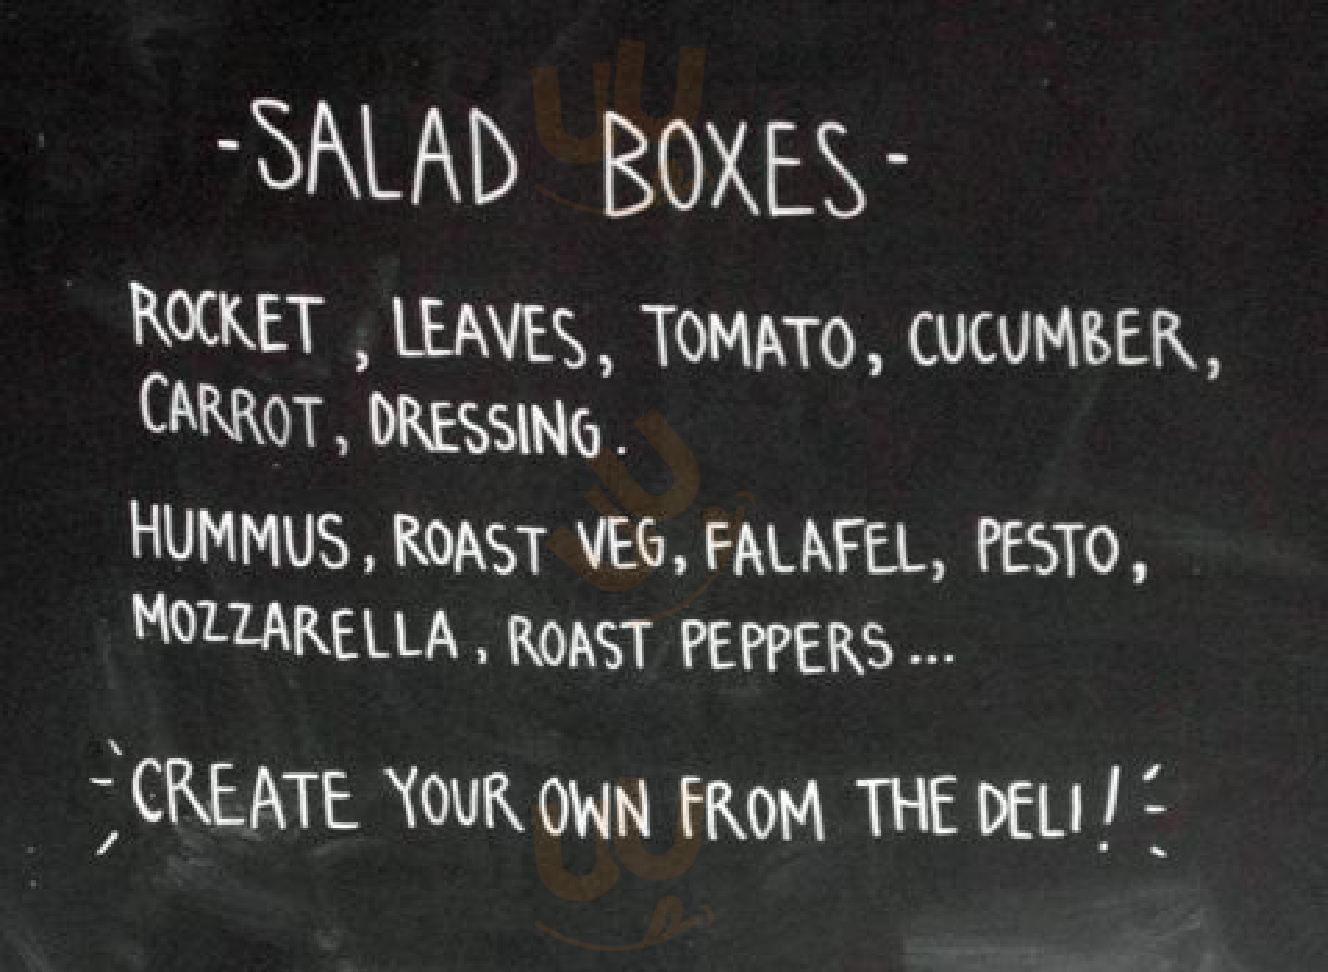 -SALAD BOXES-
ROCKET, LEAVES, TOMATO, CUCUMBER,
CARROT, DRESSING.
HUMMUS, ROAST VEG, FALAFEL, PESTO,
MOZZARELLA, ROAST PEPPERS...
CREATE YOUR OWN FROM THE DELI!